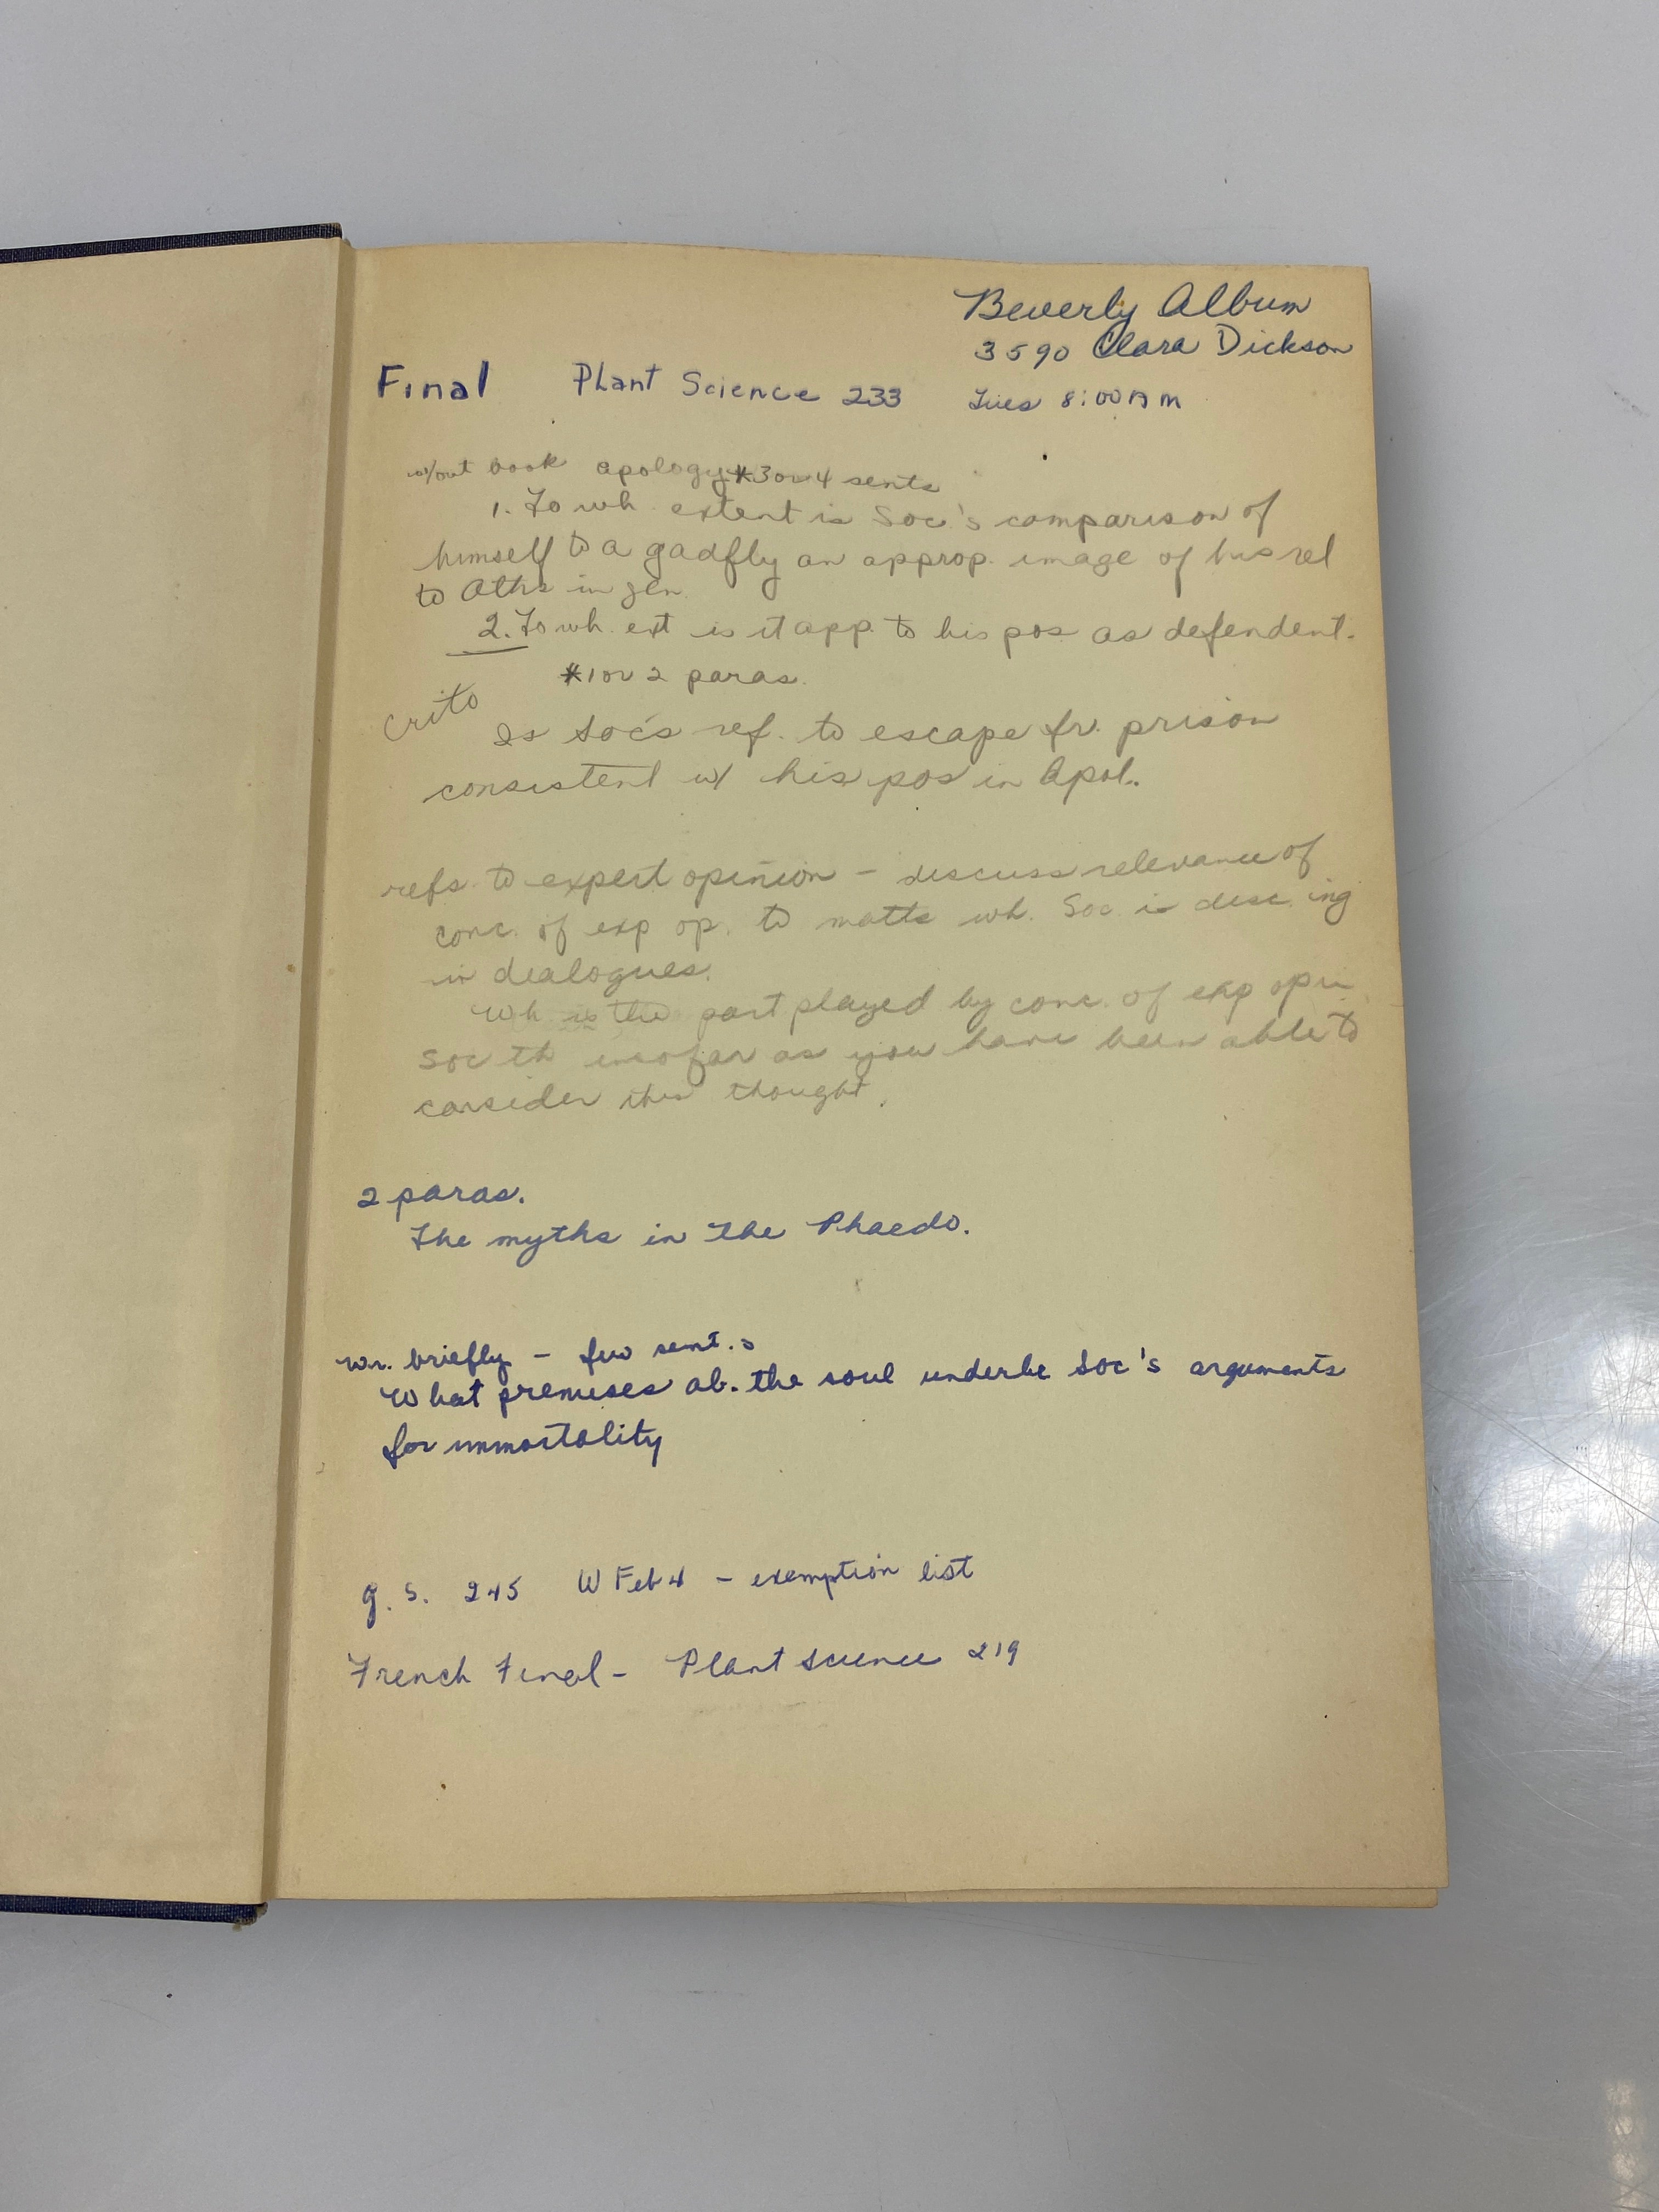 Beverly Album
3590 Clara Dickson
Final Plant Science 233 Tues 8:00 AM
w/out book apology *3 or 4 sents
1. To wh. extent is Soc's comparison of
himself to a gadfly an approp. image of his rel
to Aths in gen.
2. To wh. ext is it app. to his pos as defendent.
*1 or 2 paras.
Crito
Is Soc's ref. to escape fr. prison
consistent w/ his pos in Apol.
refs. to expert opinion - discuss relevance of
conc. of exp op. to matts wh. Soc. is disc. ing
in dialogues.
Wh is the part played by conc. of exp op in
Soc th insofar as you have been able to
consider this thought.
2 paras.
The myths in the Phaedo.
wr. briefly - few sent.s
What premises ab. the soul underlie Soc's arguments
for immortality
g. s. 245 W Feb 4 - exemption list
French Final - Plant Science 219